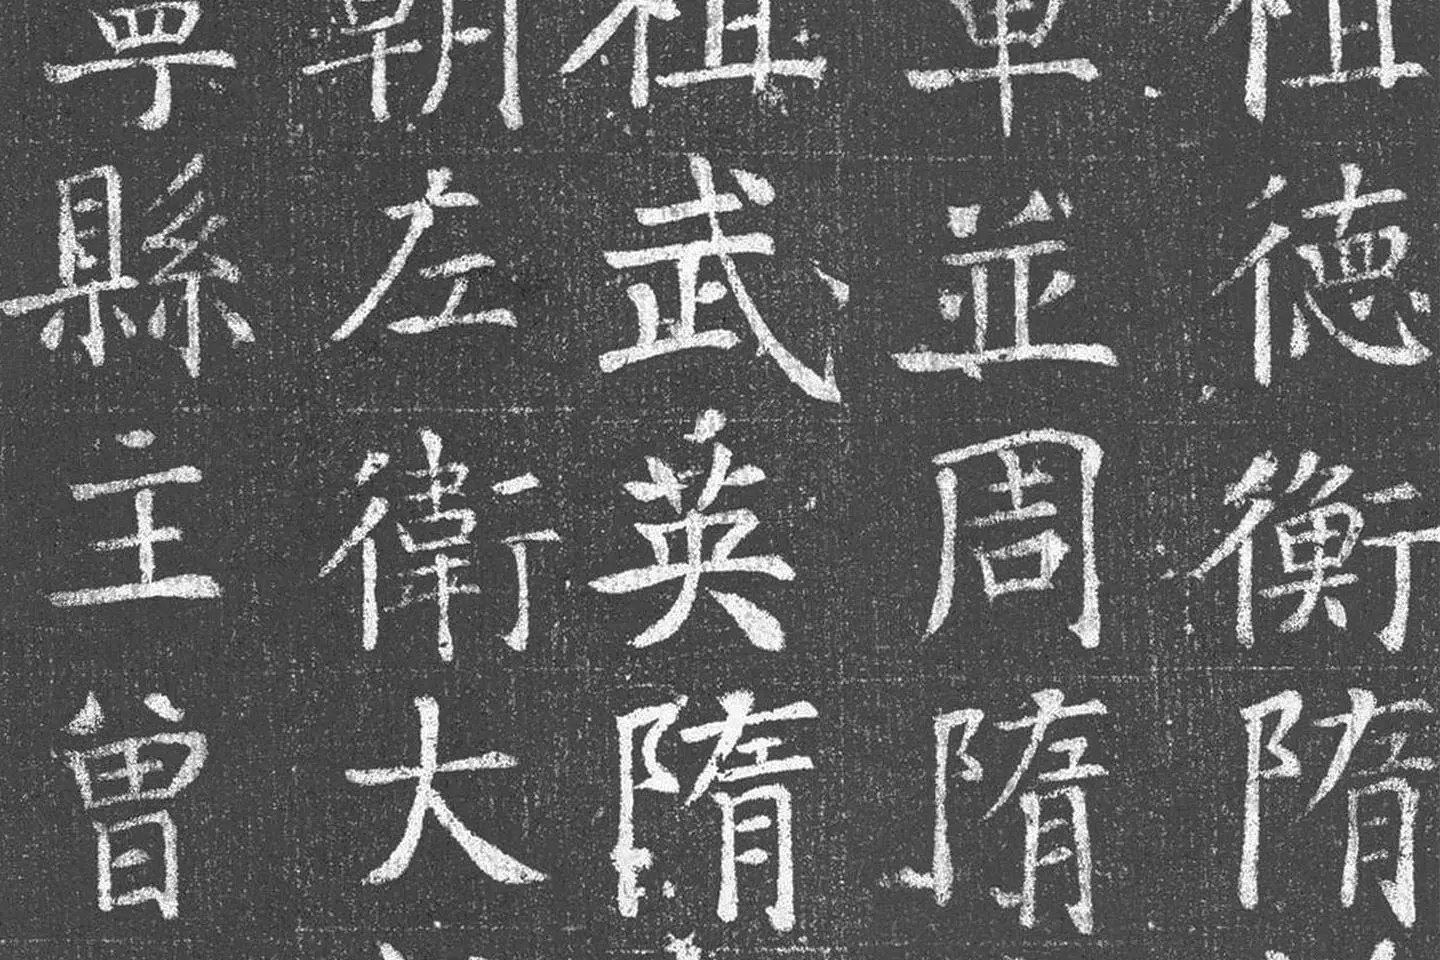 祖德衡隋
軍並周隋
祖武英隋
朝左衛大
寧縣主曾